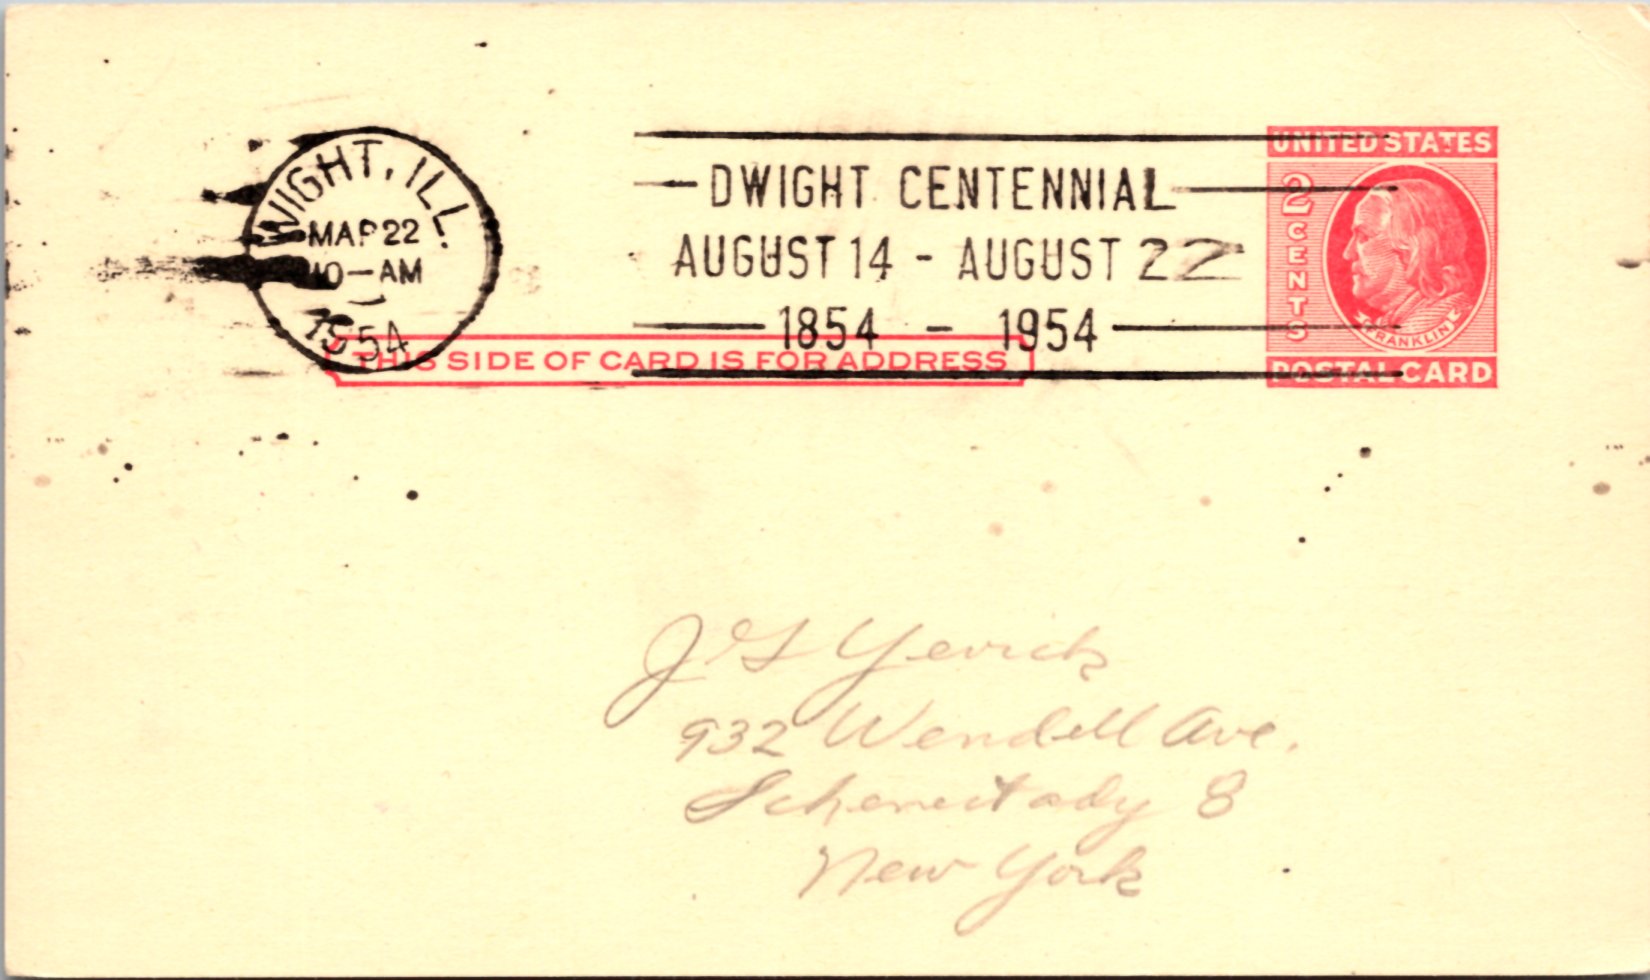 DWIGHT, ILL.
MAR 22
10-AM
1954
DWIGHT CENTENNIAL
AUGUST 14 - AUGUST 22
1854 - 1954
UNITED STATES
2 CENTS
FRANKLIN
POSTAL CARD
THIS SIDE OF CARD IS FOR ADDRESS
J G Yerick
932 Wendell Ave.
Schenectady 8
New York